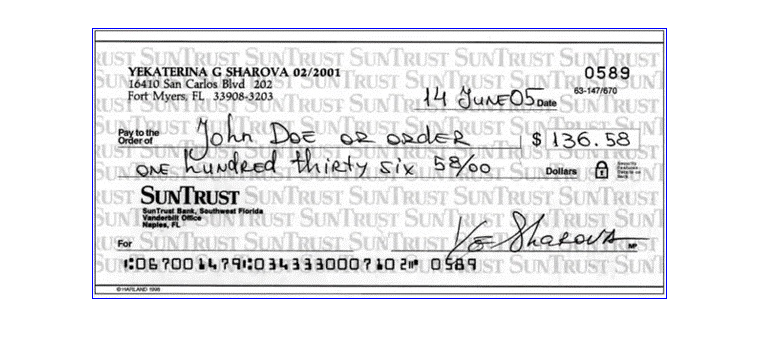 YEKATERINA G SHAROVA 02/2001
16410 San Carlos Blvd 202
Fort Myers, FL 33908-3203
0589
63-147/670
14 JUNE 05 Date
Pay to the Order of John DOE OR ORDER $ 136.58
ONE hUNDRED thirty six 58/00 Dollars
SUNTRUST
SunTrust Bank, Southwest Florida
Vanderbilt Office
Naples, FL
For YE Sharova MP
⑆067001479⑆0343330007102⑈ 0589
© HARLAND 1998